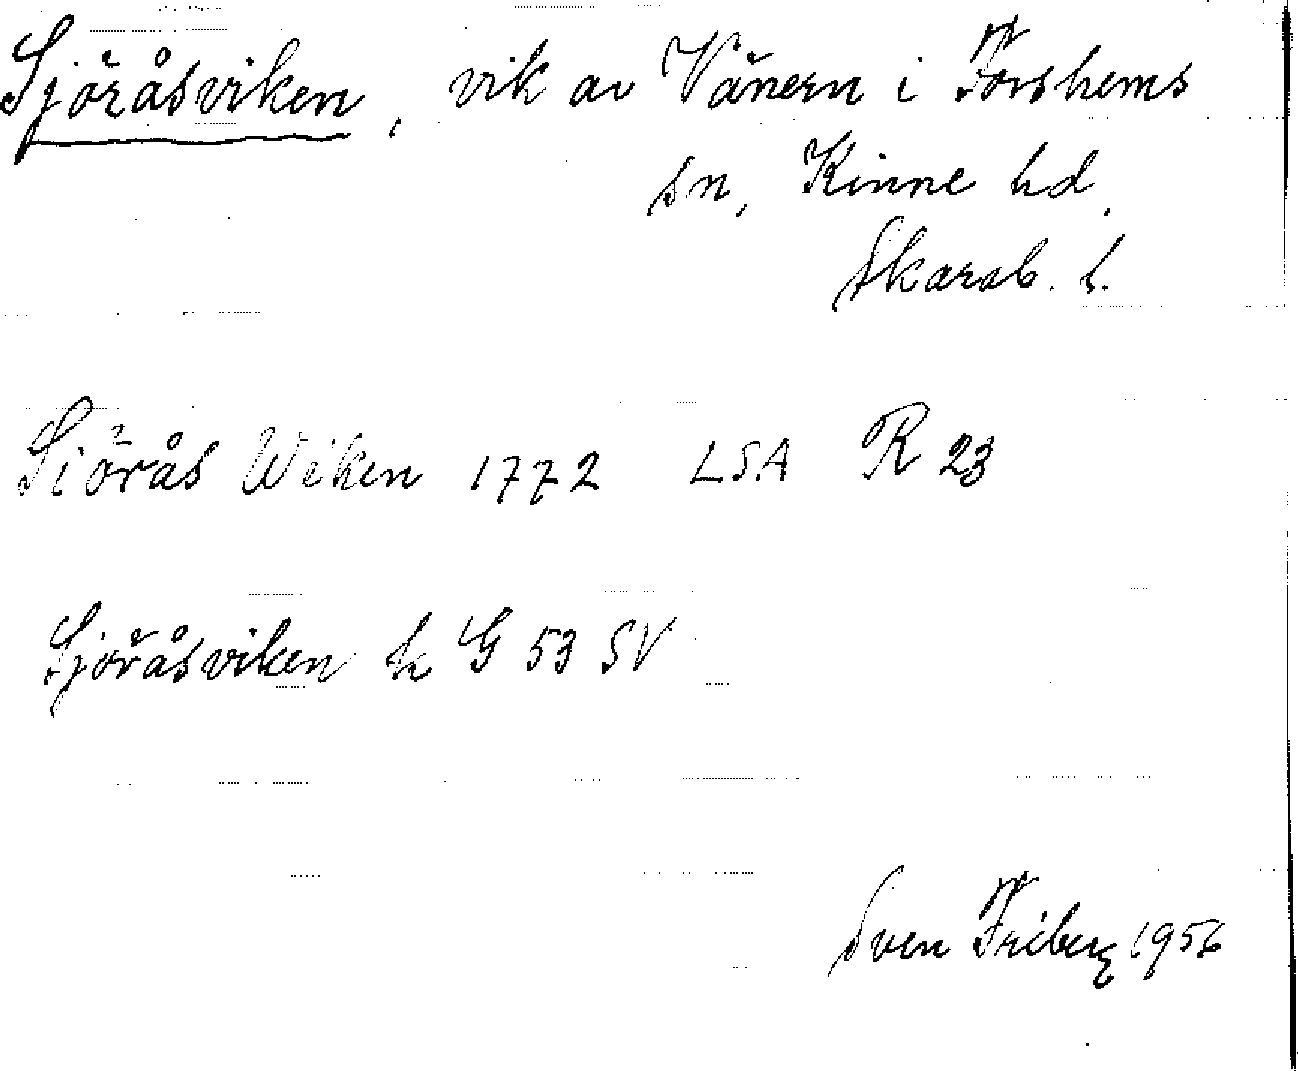 Sjöråsviken, vik av Vänern i Forshems
sn, Kinne hd,
Skarab. l.
Siörås Wiken 1772 LSA R 23
Sjöråsviken k G 53 SV
Sven Friberg 1956